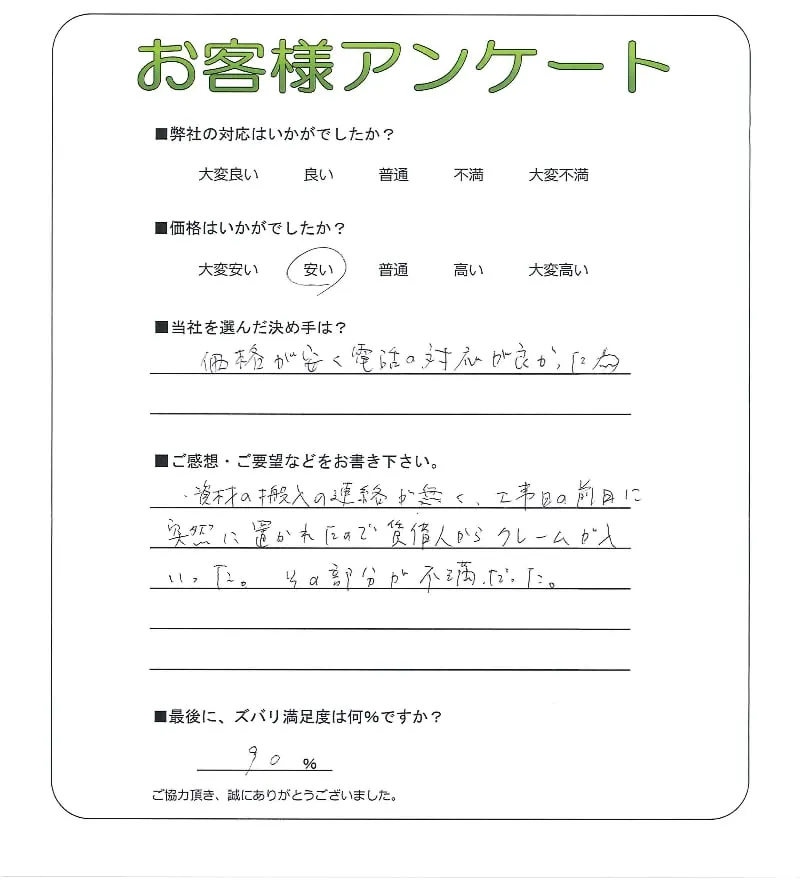 お客様アンケート
■弊社の対応はいかがでしたか？
大変良い　良い　普通　不満　大変不満
■価格はいかがでしたか？
大変安い　安い　普通　高い　大変高い
■当社を選んだ決め手は？
価格が安く電話の対応が良かった為
■ご感想・ご要望などをお書き下さい。
・資材の搬入の連絡が無く、工事日の前日に
突然に置かれたので賃借人からクレームが入
いった。その部分が不満だった。
■最後に、ズバリ満足度は何％ですか？
90 ％
ご協力頂き、誠にありがとうございました。